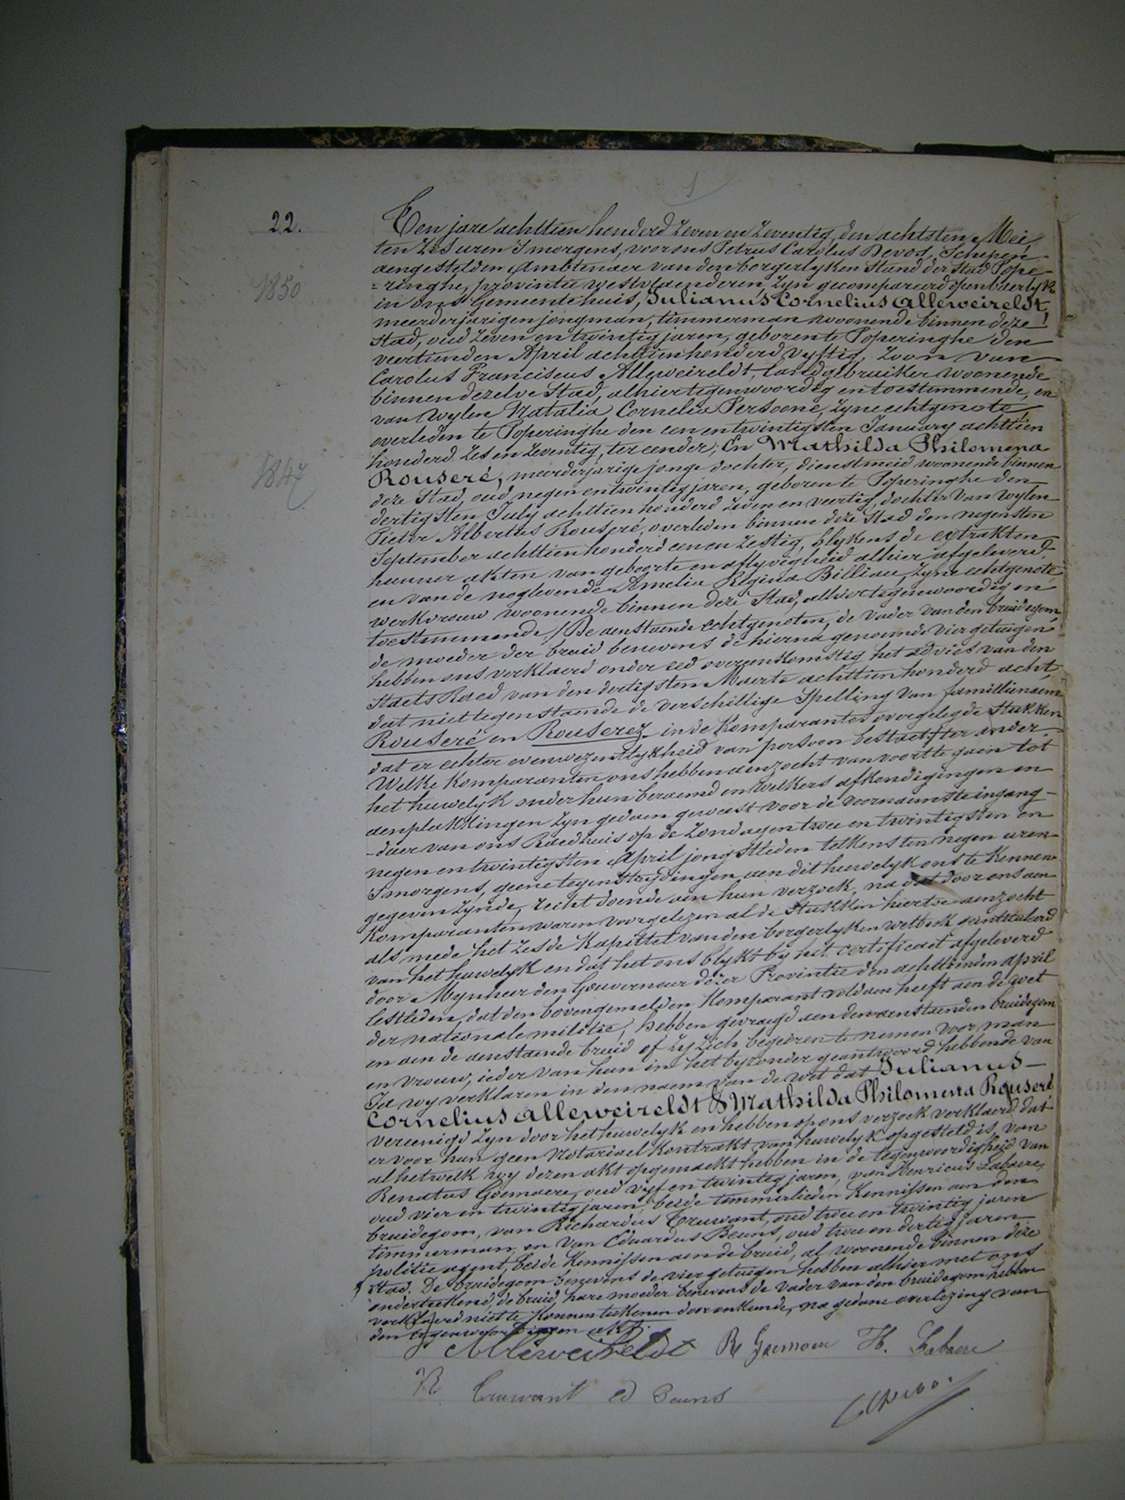 1
22.
Ten jare achttien honderd zeven en zeventig, den achtsten Mei
ten zes uren Smorgens, voor ons Petrus Carolus Devos, Schepen
aengestelden Ambtenaer van den borgerlyken Stand der Stad Pope-
=ringhe, provintie westvlaenderen, zyn gecompareerd openbaerlyk
1850
in ons Gemeentehuis, Julianus Cornelius Alleweireldt,
meerderjarigen jongman, timmerman woonende binnen deze
Stad, oud zeven en twintig jaren, geboren te Poperinghe den
veertienden April achttien honderd vyftig, zoon van
Carolus Franciscus Alleweireldt, landgebruiker woonende
binnen dezelve Stad, alhier tegenwoordig en toestemmende, en
van wylen Natalia Cornelia Persoone, zyne echtgenote,
overleden te Poperinghe den een en twintigsten January achttien
honderd zes en zeventig, ter eender; En Mathilda Philomena
1847
Rouseré, meerderjarige jonge dochter, dienstmeid woonende binnen
deze Stad, oud negen en twintig jaren, geboren te Poperinghe den
dertigsten July achttien honderd zeven en veertig, dochter van wylen
Pieter Albertus Rouseré, overleden binnen deze Stad den negensten
September achttien honderd een en zestig, blykens de extrakten
hunner akten van geboorte en aflyvigheid alhier afgeleverd,
en van de noglevende Amelia Regina Billiau, zyne echtgenote
werkvrouw woonende binnen deze Stad, alhier tegenwoordig en
toestemmende / De aenstaende echtgenoten, de vader van den bruidegom,
de moeder der bruid benevens de hierna genoemde vier getuigen
hebben ons verklaerd onder eed overeenkomstig het advies van den
Staets Raed van den dertigsten Maerte achttien honderd acht,
dat niettegenstaende de verschillige Spelling van familienaem
Rouseré en Rouserez in de Komparanten overgelegde Stukken
dat er echter evenwezentlykheid van persoon bestaet, ter ander.
Welke Komparanten ons hebben aenzocht van voorts te gaen tot
het huwelyk onder hun beraemd en welkers afkondigingen en
aenplakkingen zyn gedaen geweest voor de voornaemste ingang-
-deur van ons Raedhuis op de Zondagen twee en twintigsten en
negen en twintigsten April jongstleden telkens ten negen uren
Smorgens, geene tegenstrydingen aen dit huwelyk ons te kennen
gegeven zynde, recht doende aen hun verzoek, na dat door ons aen
Komparanten waren voorgelezen al de Stukken hiertoe aenzocht
als mede het zesde Kapittel van den borgerlyken wetboek handelende
van het huwelyk en dat het ons blykt by het certificaet afgeleverd
door Mynheer den Gouverneur dezer Provintie den achttienden april
lestleden, dat den bovengemelden Komparant voldaen heeft aen de wet
der nationale militie, hebben gevraegd aen den aenstaenden bruidegom
en aen de aenstaende bruid of zy zich begeeren te nemen voor man
en vrouw, ieder van hun in het byzonder geantwoord hebbende van
Ja wy verklaren in den naem van de wet dat Julianus
Cornelius Alleweireldt & Mathilda Philomena Rouseré
vereenigd zyn door het huwelyk en hebben op ons verzoek verklaerd dat
er voor hun geen Notariael Kontrakt van huwelyk opgesteld is, van
al hetwelk wy dezen akt opgemaekt hebben in de tegenwoordigheid van
Renatus Goemaere, oud vyf en twintig jaren, van Henricus Labaere,
oud vier en twintig jaren, beide timmerlieden Kennissen aen den
bruidegom, van Richardus Cruwant, oud twee en twintig jaren
timmerman, en van Eduardus Beuns, oud twee en dertig jaren
politie agent, beide Kennissen aen de bruid, al woonende binnen deze
Stad. De bruidegom benevens de vier getuigen hebben alhier met ons
onderteekend, de bruid, hare moeder benevens de vader van den bruidegom hebben
verklaerd niet te Konnen teekenen door onkunde, na gedane overlezing van
den tegenwoordigen akt.
Alleweireldt R Goemaere H. Labaere
R Cruwant ed Beuns